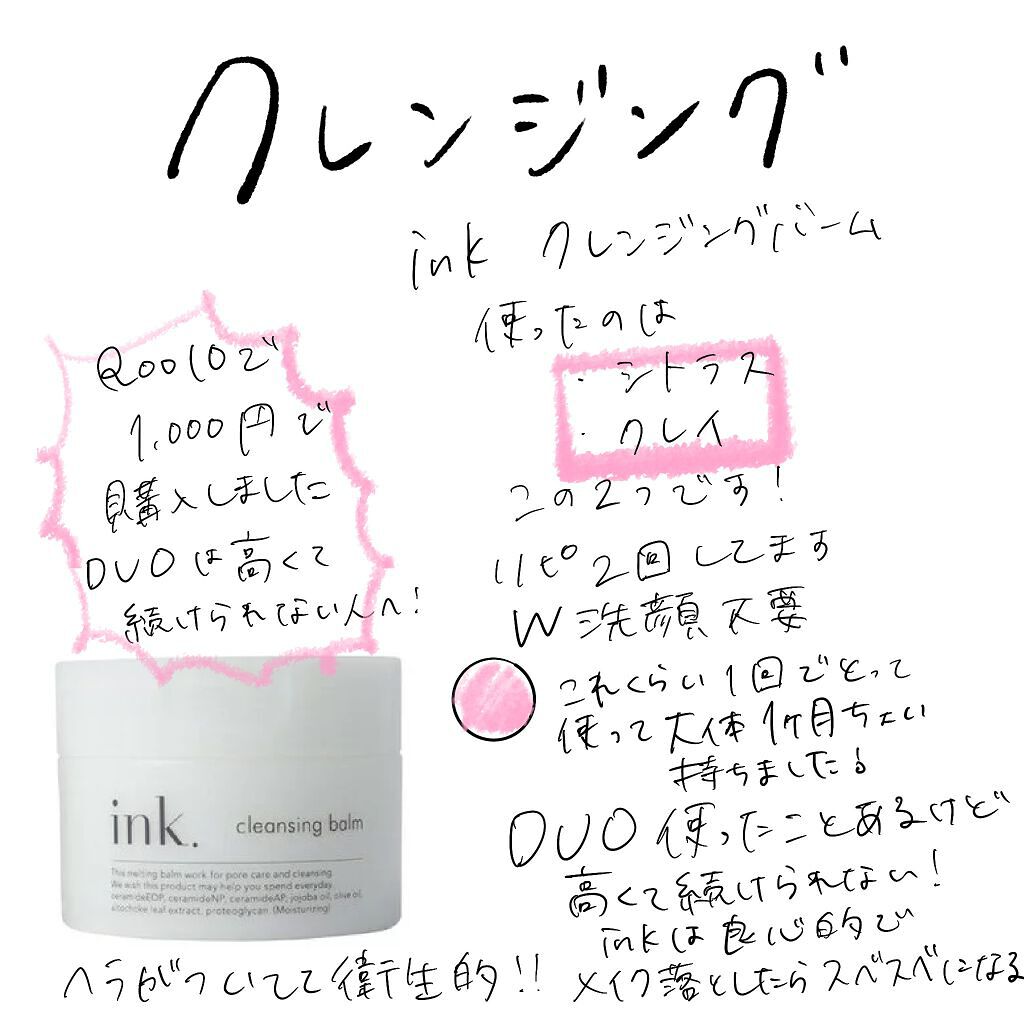 クレンジング
ink クレンジングバーム
使ったのは
・シトラス
・クレイ
この2つです!
リピ2回してます
W洗顔不要
これくらい1回でとって
使って大体1ヶ月ちょい
持ちました!
DUO使ったことあるけど
高くて続けられない!
inkは良心的で
メイク落としたらスベスベになる
Qoo10で
1,000円で
購入しました
DUOは高くて
続けられない人へ!
ink.
cleansing balm
This melting balm work for pore care and cleansing.
We wish this product may help you spend everyday.
ceramideEOP, ceramideNP, ceramideAP, jojoba oil, olive oil,
aitochoke leaf extract, proteoglycan. (Moisturizing)
ヘラがついてて衛生的!!